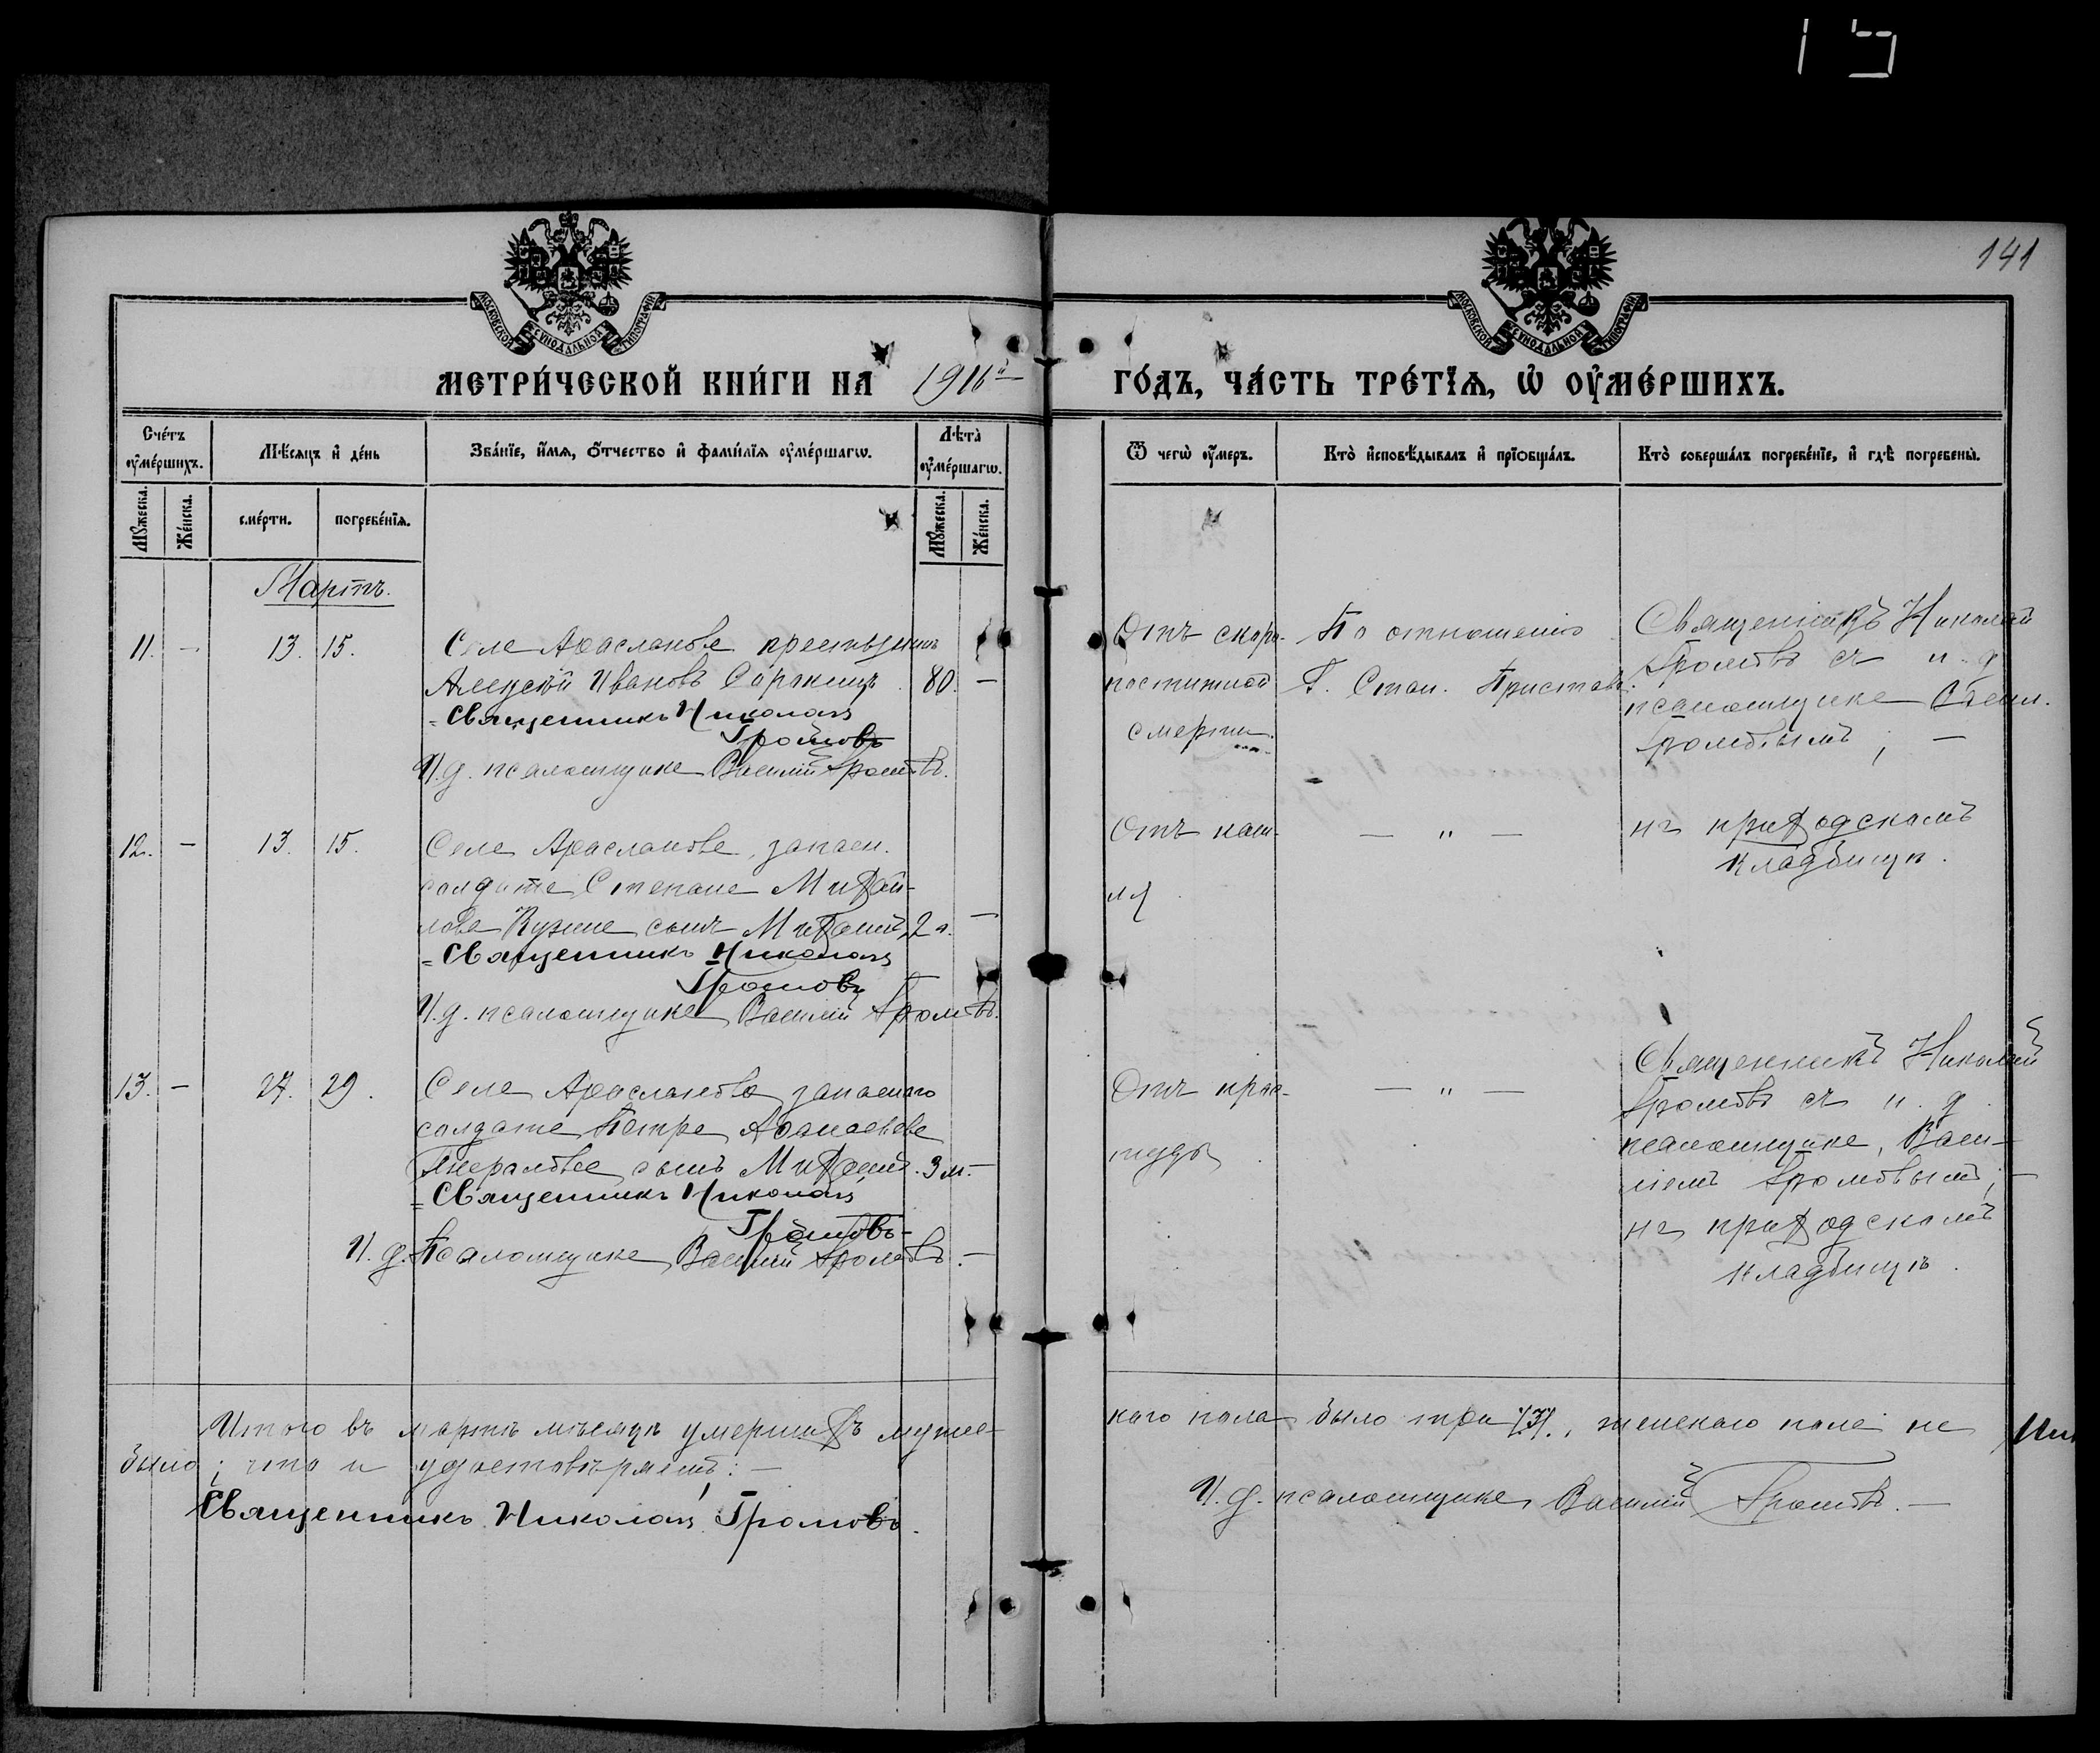 141
МОСКОВСКОЙ СѴНОДАЛЬНОЙ ТИПОГРАФІИ
МОСКОВСКОЙ СѴНОДАЛЬНОЙ ТИПОГРАФІИ
МЕТРИ́ЧЕСКОЙ КНИ́ГИ НА 1916й
ГО́ДЪ, ЧА́СТЬ ТРЕ́ТЇѦ, Ѡ҆ ОУ҆МЕ́РШИХЪ.
Сче́тъ оу҆ме́ршихъ.
Мѣ́сяцъ и҆ де́нь
Зва́нїе, и҆́мѧ, ѻ҆́тчество и҆ фамѝлїѧ оу҆ме́ршагѡ.
Лѣ́та̀ оу҆ме́ршагѡ.
Мꙋ́жеска.
Же́нска.
сме́рти.
погребе́нїѧ.
Мꙋ́жеска.
Же́нска.
Ѿ чегѡ̀ оу҆́меръ.
Кто̀ и҆сповѣ́дывалъ и҆ прїѻбща́лъ.
Кто̀ соверша́лъ погребе́нїе, и҆ гдѣ̀ погребены̀.
Мартъ.
11. - 13. 15.
Села Арасланова крестьянинъ
Алексѣй Ивановъ Сорокинъ 80. -
Священникъ Николай
Громовъ
И.д. псаломщика Василій Громовъ.
Отъ скоро-
постижной
смерти.
По отношенію
Г. Стан. Пристава.
Священникъ Николай
Громовъ съ и. д.
псаломщика Васил.
Громовымъ; -
12. - 13. 15.
Села Арасланова, запасн.
солдата Степана Михай-
лова Кузина сынъ Михаилъ 2 л. -
Священникъ Николай
Громовъ
И.д. псаломщика Василій Громовъ.
Отъ каш-
ля
— " —
на приходскомъ
кладбищѣ.
13. - 27. 29.
Села Арасланова запаснаго
солдата Петра Аѳанасьева
сынъ Михаилъ. 3 м. -
Священникъ Николай
Громовъ
И.д. Псаломщика Василій Громовъ. -
Отъ прос-
туды
— " —
Священникъ Николай
Громовъ съ и. д.
псаломщика, Васи-
ліемъ Громовымъ; -
на приходскомъ
кладбищѣ.
Итого въ мартѣ мѣсяцѣ умершихъ мужс-
каго пола было три /3/., женскаго пола не
было; что и удостовѣряемъ: -
Священникъ Николай Громовъ.
И.д. псаломщика Василій Громовъ. -